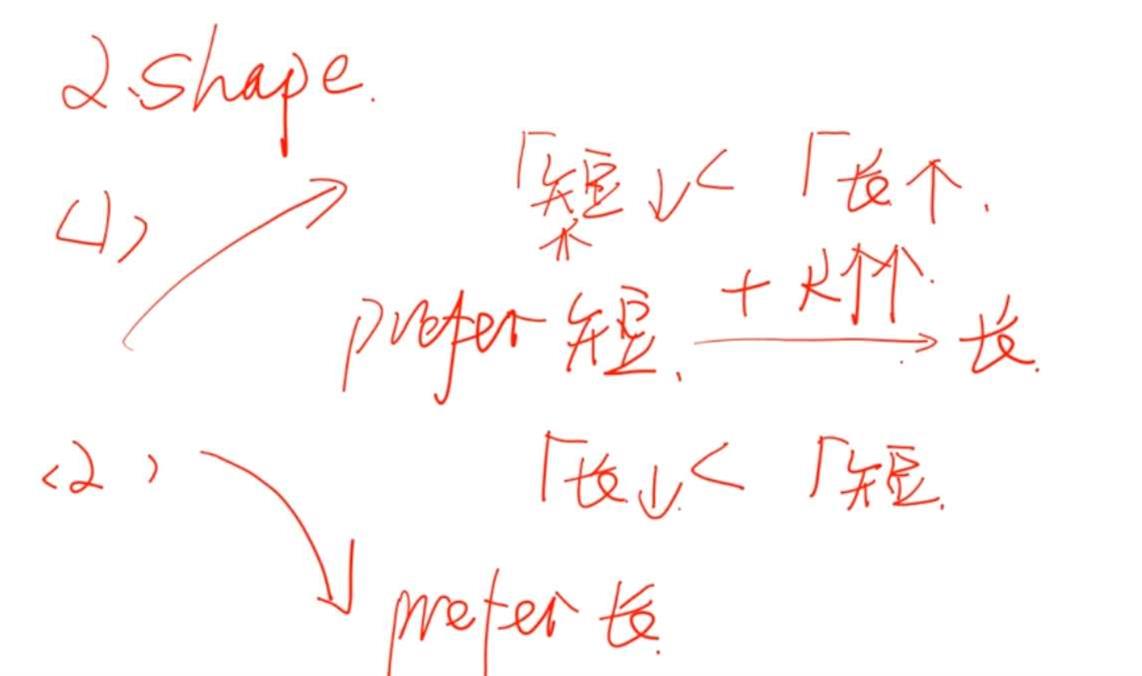 2. shape.
<1>
r短↓ < r长↑.
prefer 短. + R↑↑↑. → 长.
<2>
r长↓ < r短.
prefer 长.